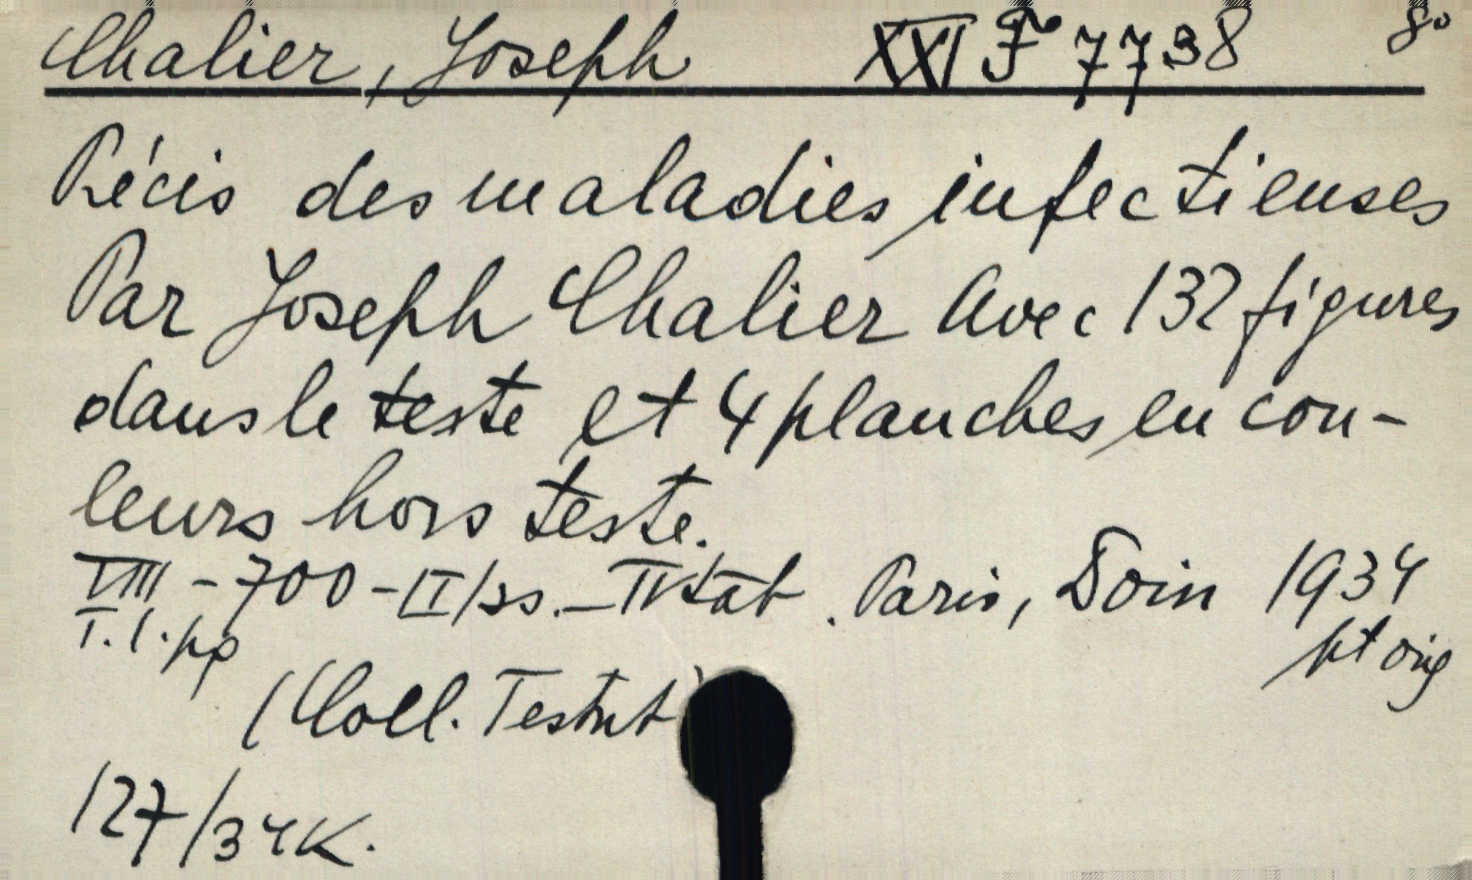 Chalier, Joseph XXI F 7738 8°
Précis des maladies infectieuses
Par Joseph Chalier Avec 132 figures
dans le teste et 4 planches en cou-
leurs hors teste.
VIII-700-II/ss.-IV tab. Paris, Doin 1934
T.l.pp pt orig
(Coll. Testut)
127/34K.